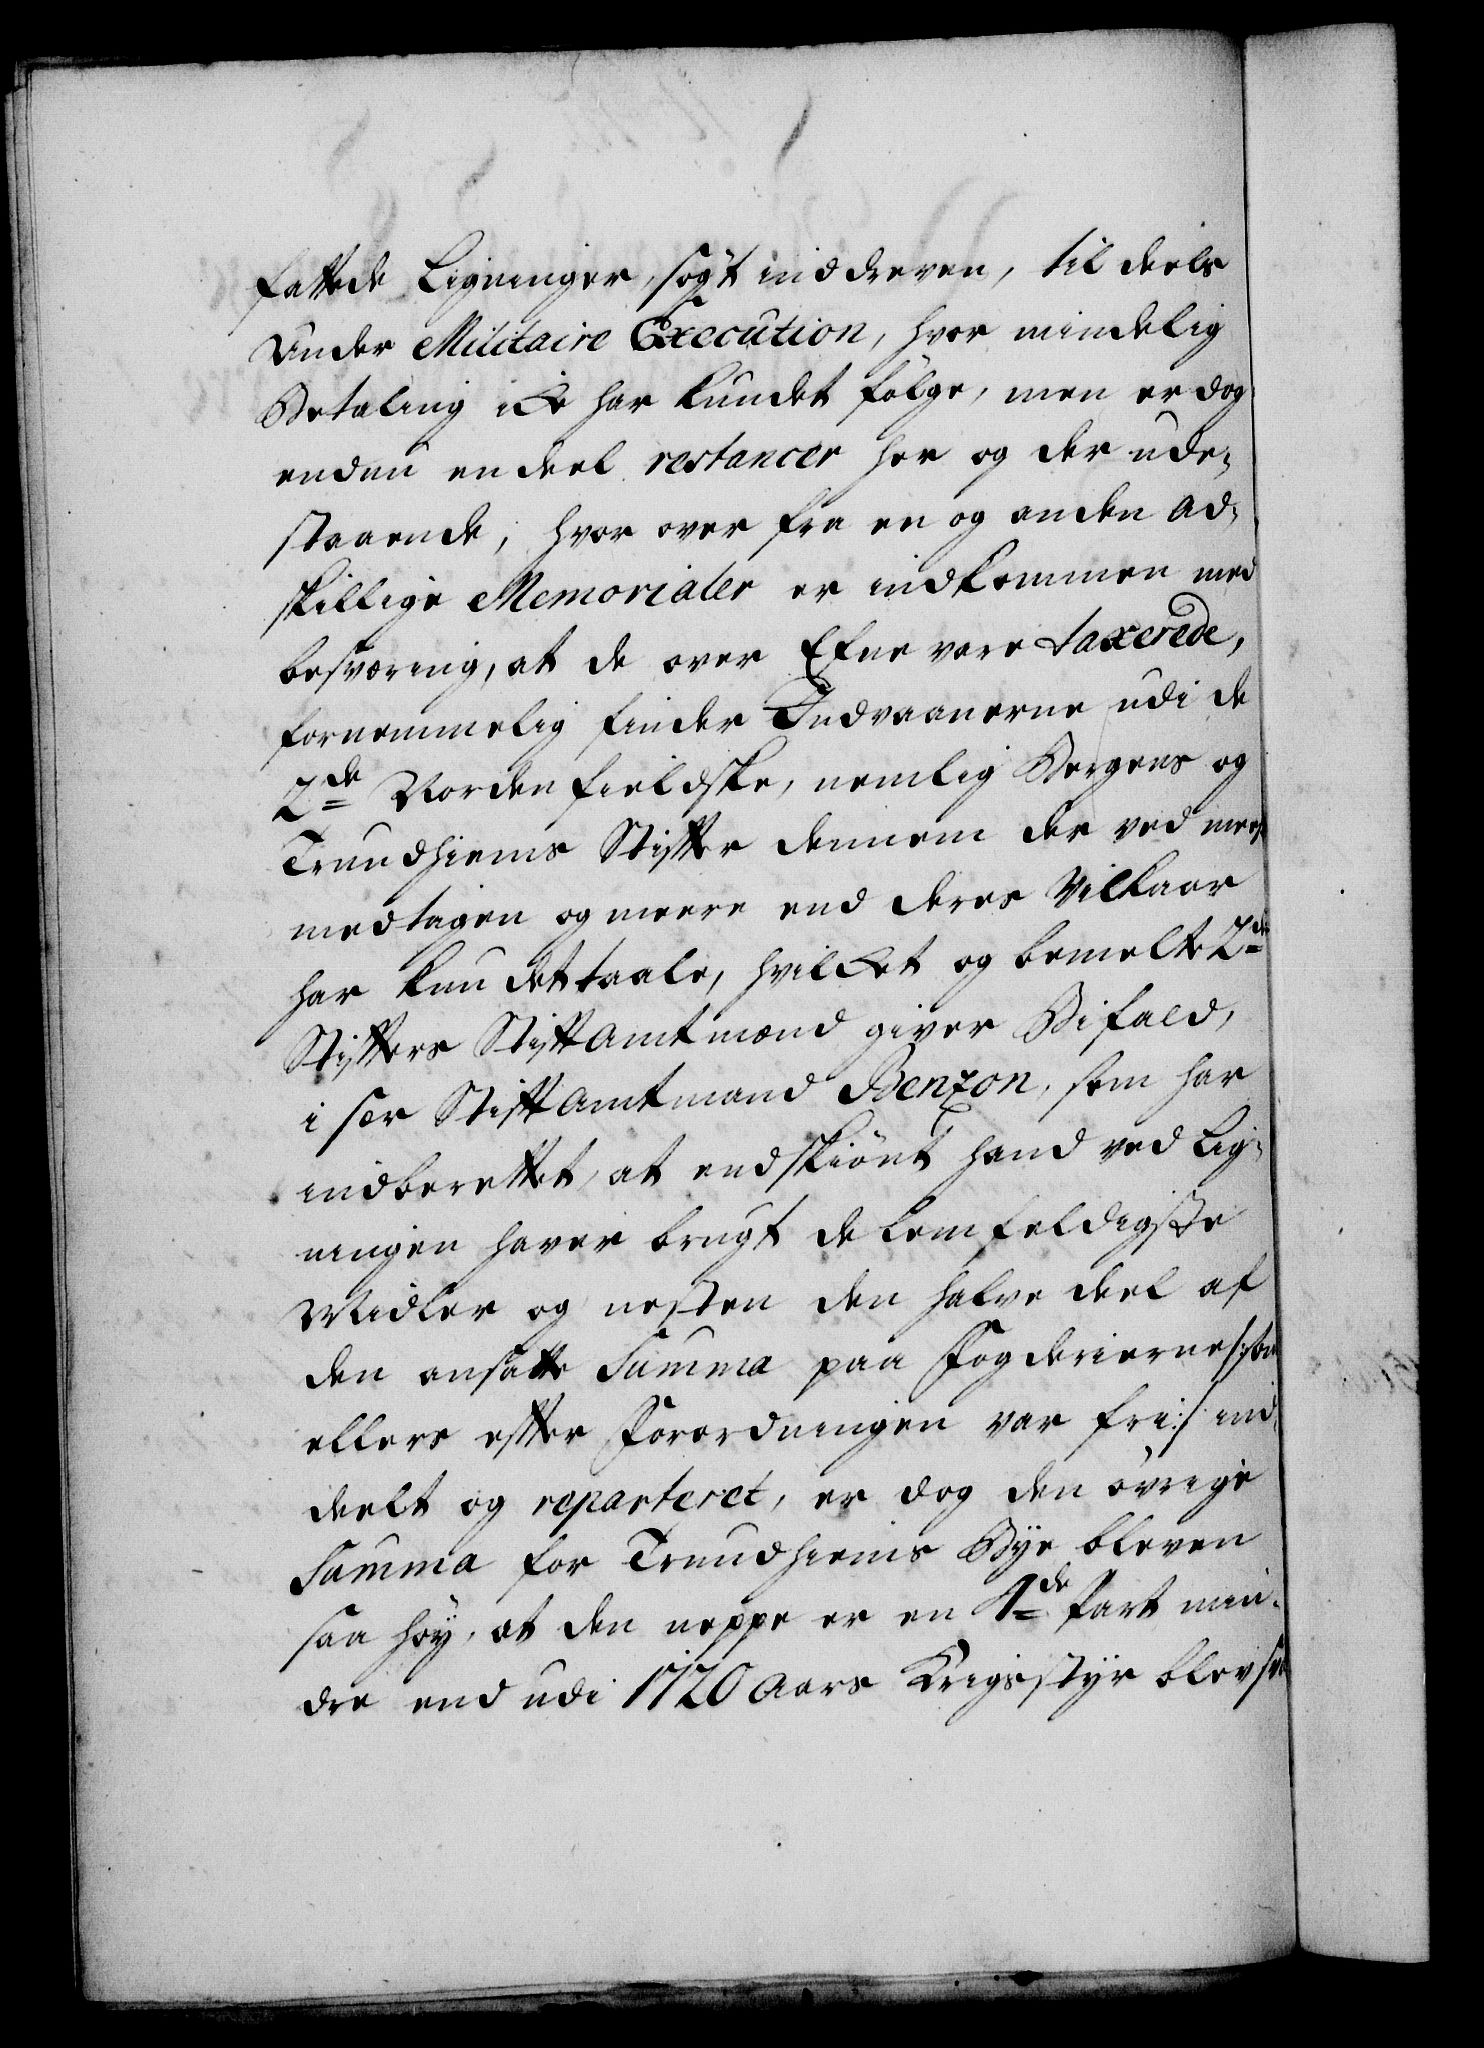 fattede Ligninger, søgt inddreven, til deels
Under Militaire Execution, hvor mindelig
Betaling icke har kundet følge, men er dog
endnu en deel restancer her og der ude¬
staaende, hvor over fra en og anden ad¬
skillige Memorialer er indkommen med
besværing, at de over Efne vare taxerede,
fornemmelig finder Indvaanerne udi de
2de Nordenfieldske, nemlig Bergens og
Trundhiems Stifter dennem der ved meest
medtagen og meere end deres Vilkaar
har kundet taale, hvilcket og bemelte 2de
Stifters Stiftamtmænd giver Bifald,
i sær Stiftamtmand Benzon, som har
indberettet, at endskiønt hand ved Lig¬
ningen haver brugt de lemfeldigste
Midler og nesten den halve deel af
den ansatte Summa paa Fogderierne /: som
ellers efter Forordningen var fri :/ ind¬
deelt og reparteret, er dog den øvrige
Summa for Trundhiems Bye bleven
saa høy, at den neppe er en 4de Part min¬
dre end udi 1720 Aars Krigsstyr blev